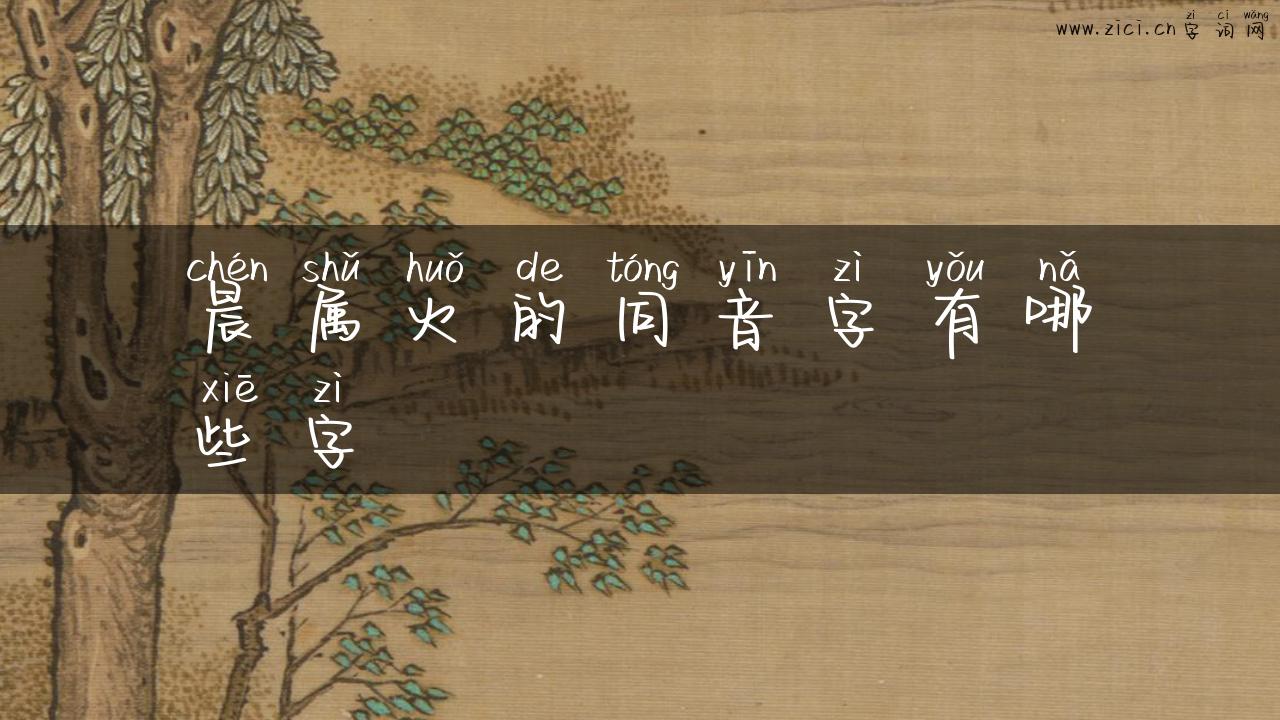 zì cí wǎng
www.zici.cn 字词网
chén shǔ huǒ de tóng yīn zì yǒu nǎ
晨属火的同音字有哪
xiē zì
些字